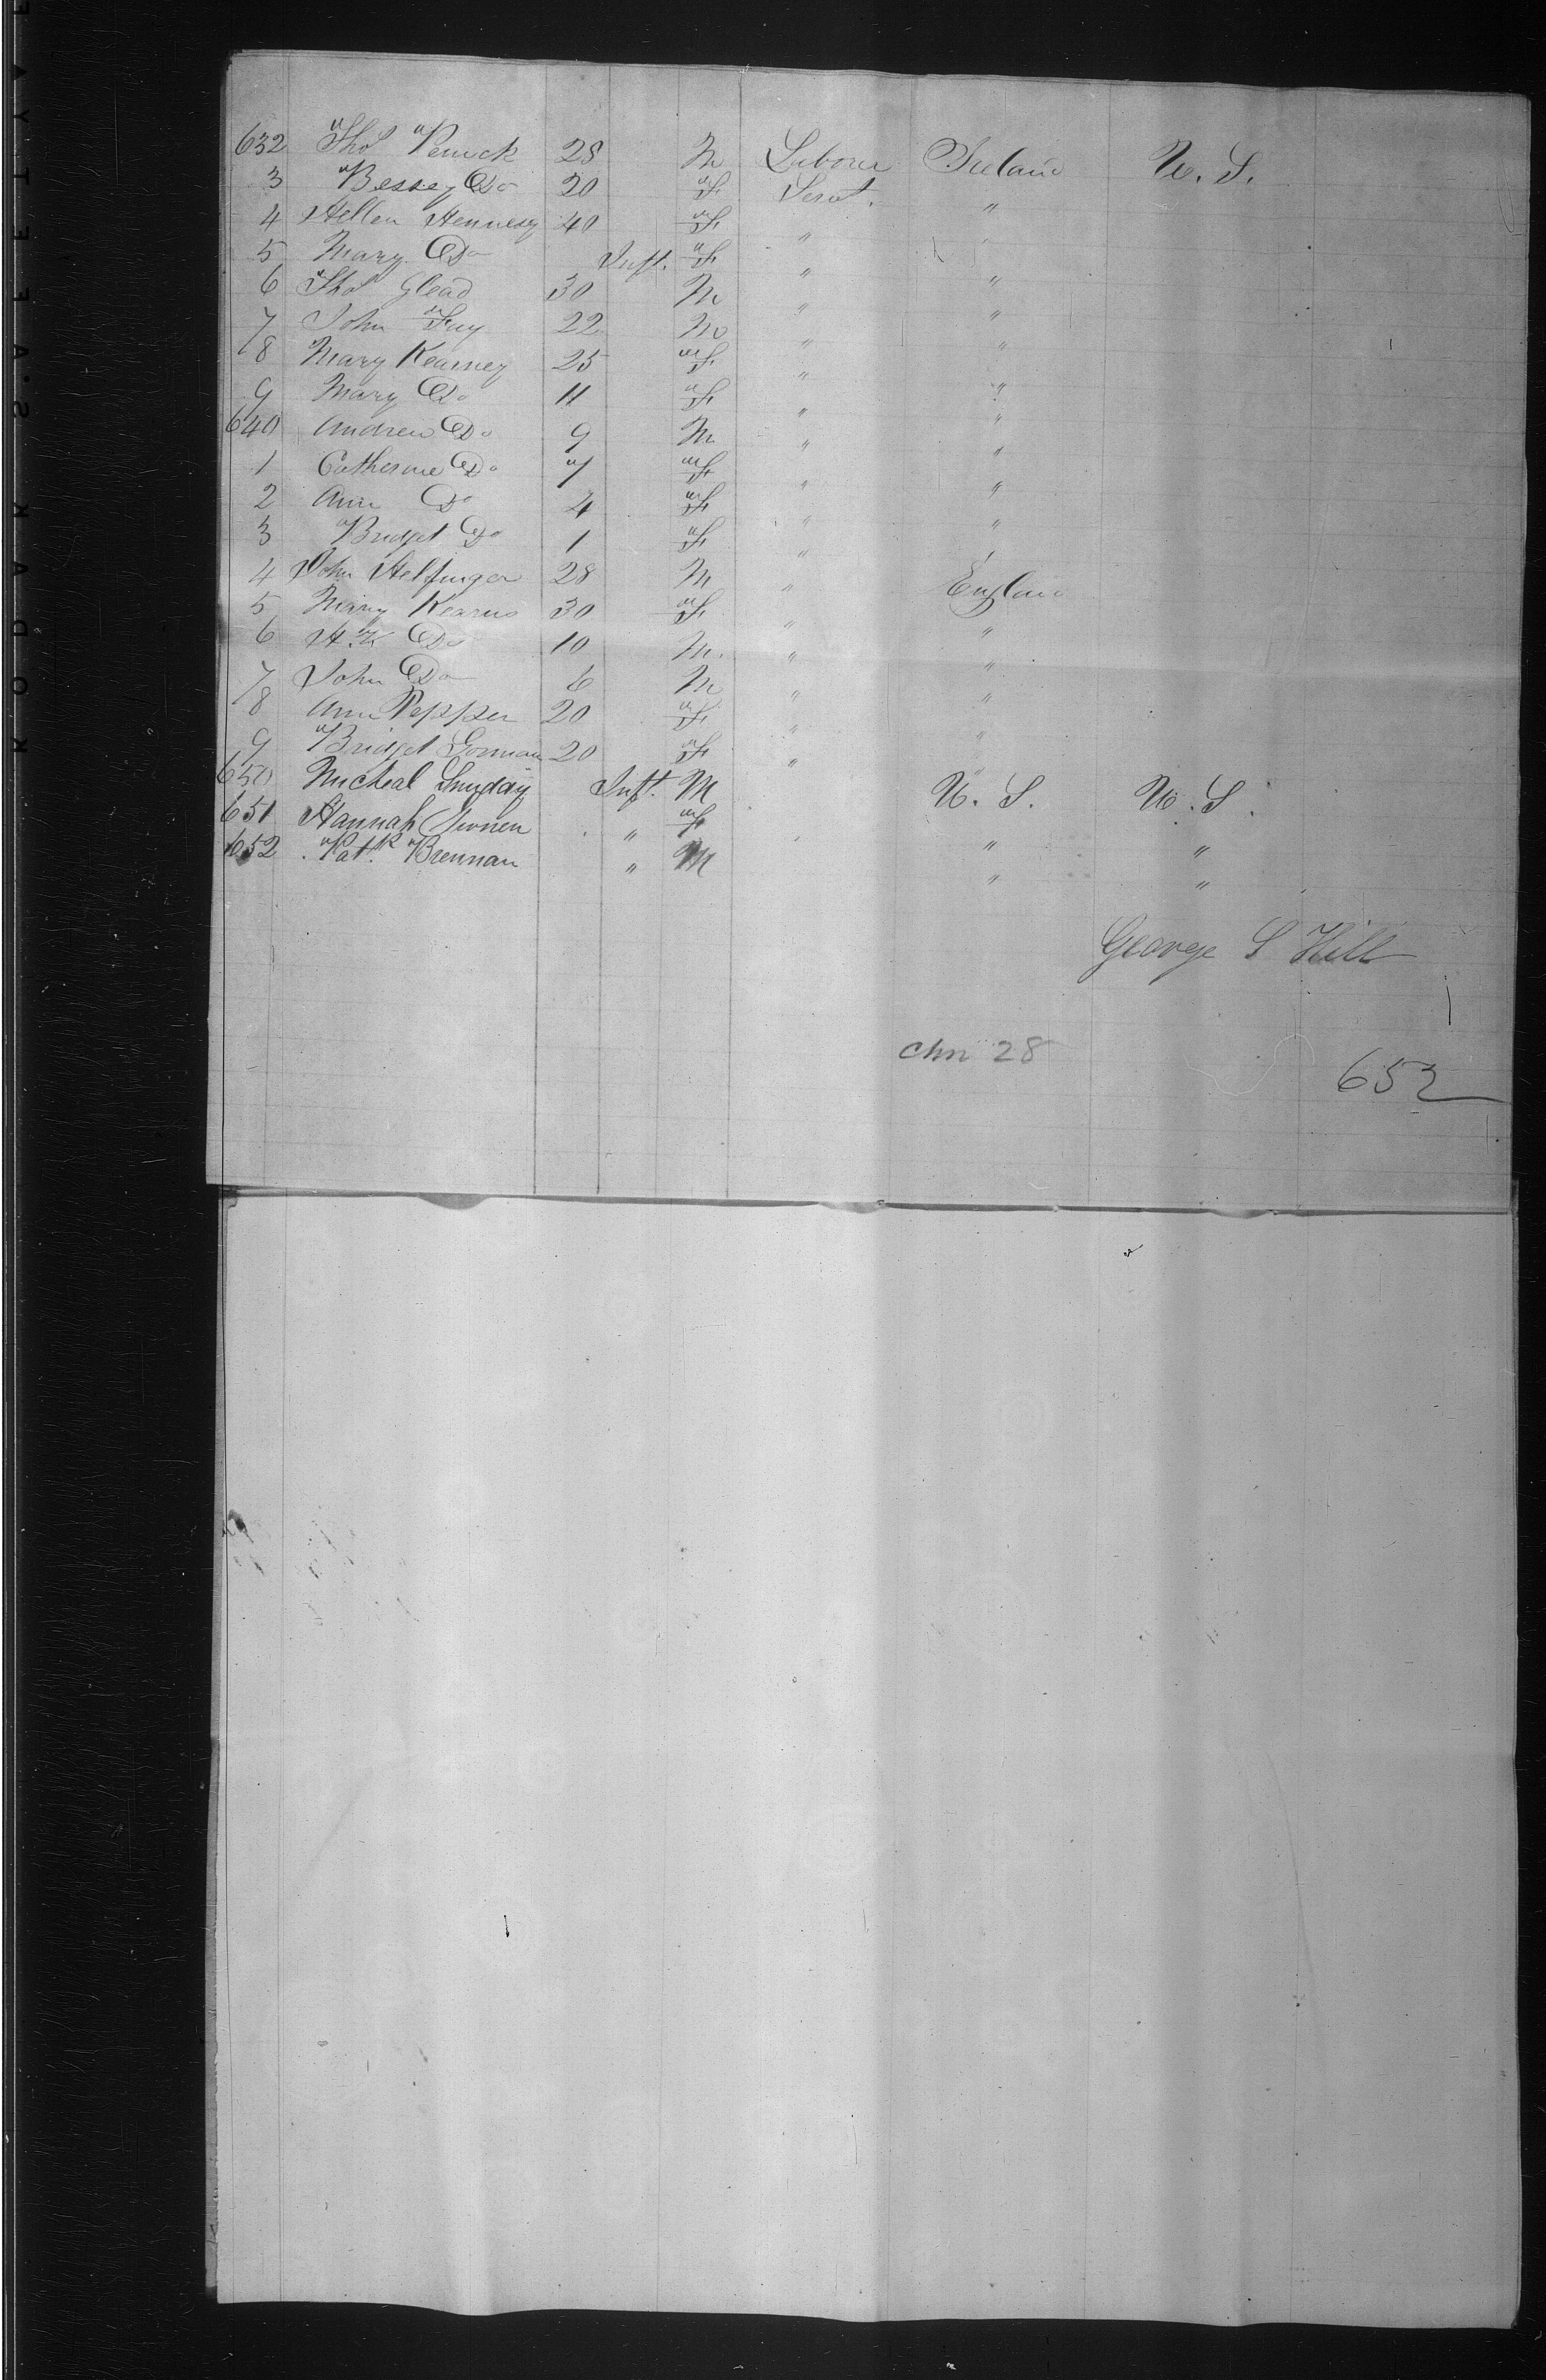 632 Thos Penick 28 M Laborer Ireland U. S.
3 Bessey Do 20 F Servt. "
4 Hellen Hennesy 40 F " "
5 Mary Do Inft. F " "
6 Thos Glead 30 M " "
7 John Fay 22 M " "
8 Mary Kearney 25 F " "
9 Mary Do 11 F " "
640 Andrew Do 9 M " "
1 Catherine Do 7 F " "
2 Ann Do 4 F " "
3 Bridget Do 1 F " "
4 John Helfinger 28 M " England
5 Mary Kearns 30 F " "
6 H. K Do 10 M. " "
7 John Do 6 M " "
8 Ann Pepper 20 F " "
9 Bridget Gorman 20 F "
650 Micheal Inft. M U. S. U. S.
651 Hannah " F " "
652 Patk Brennan " M " "
George S Hill
chn 28
652